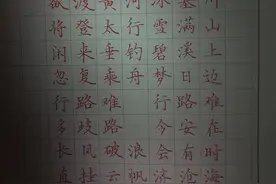 欲渡黄河冰塞川
将登太行雪满山
闲来垂钓碧溪上
忽复乘舟梦日边
行路难 行路难
多歧路 今安在
长风破浪会有时
直挂云帆济沧海